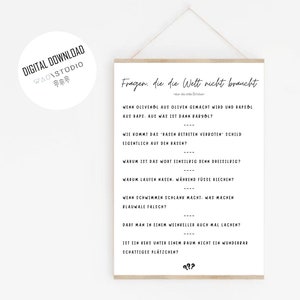 DIGITAL DOWNLOAD
STUDIO
Fragen, die die Welt nicht braucht
WENN OLIVENÖL AUS OLIVEN GEMACHT WIRD UND RAPSÖL
AUS RAPS, AUS WAS IST DANN BABYÖL?
WIE KOMMT DAS "RASEN BETRETEN VERBOTEN" SCHILD
EIGENTLICH AUF DEN RASEN?
WARUM IST DAS WORT EINSILBIG DENN DREISILBIG?
WARUM LAUFEN NASEN, WÄHREND FÜSSE RIECHEN?
WENN SCHWIMMEN SCHLANK MACHT, WAS MACHEN
BLAUWALE FALSCH?
DARF MAN IN EINEM WEINKELLER AUCH MAL LACHEN?
IST EIN REHE UNTER EINEM BAUM NICHT EIN WUNDERBAR
SCHATTIGES PLÄTZCHEN?